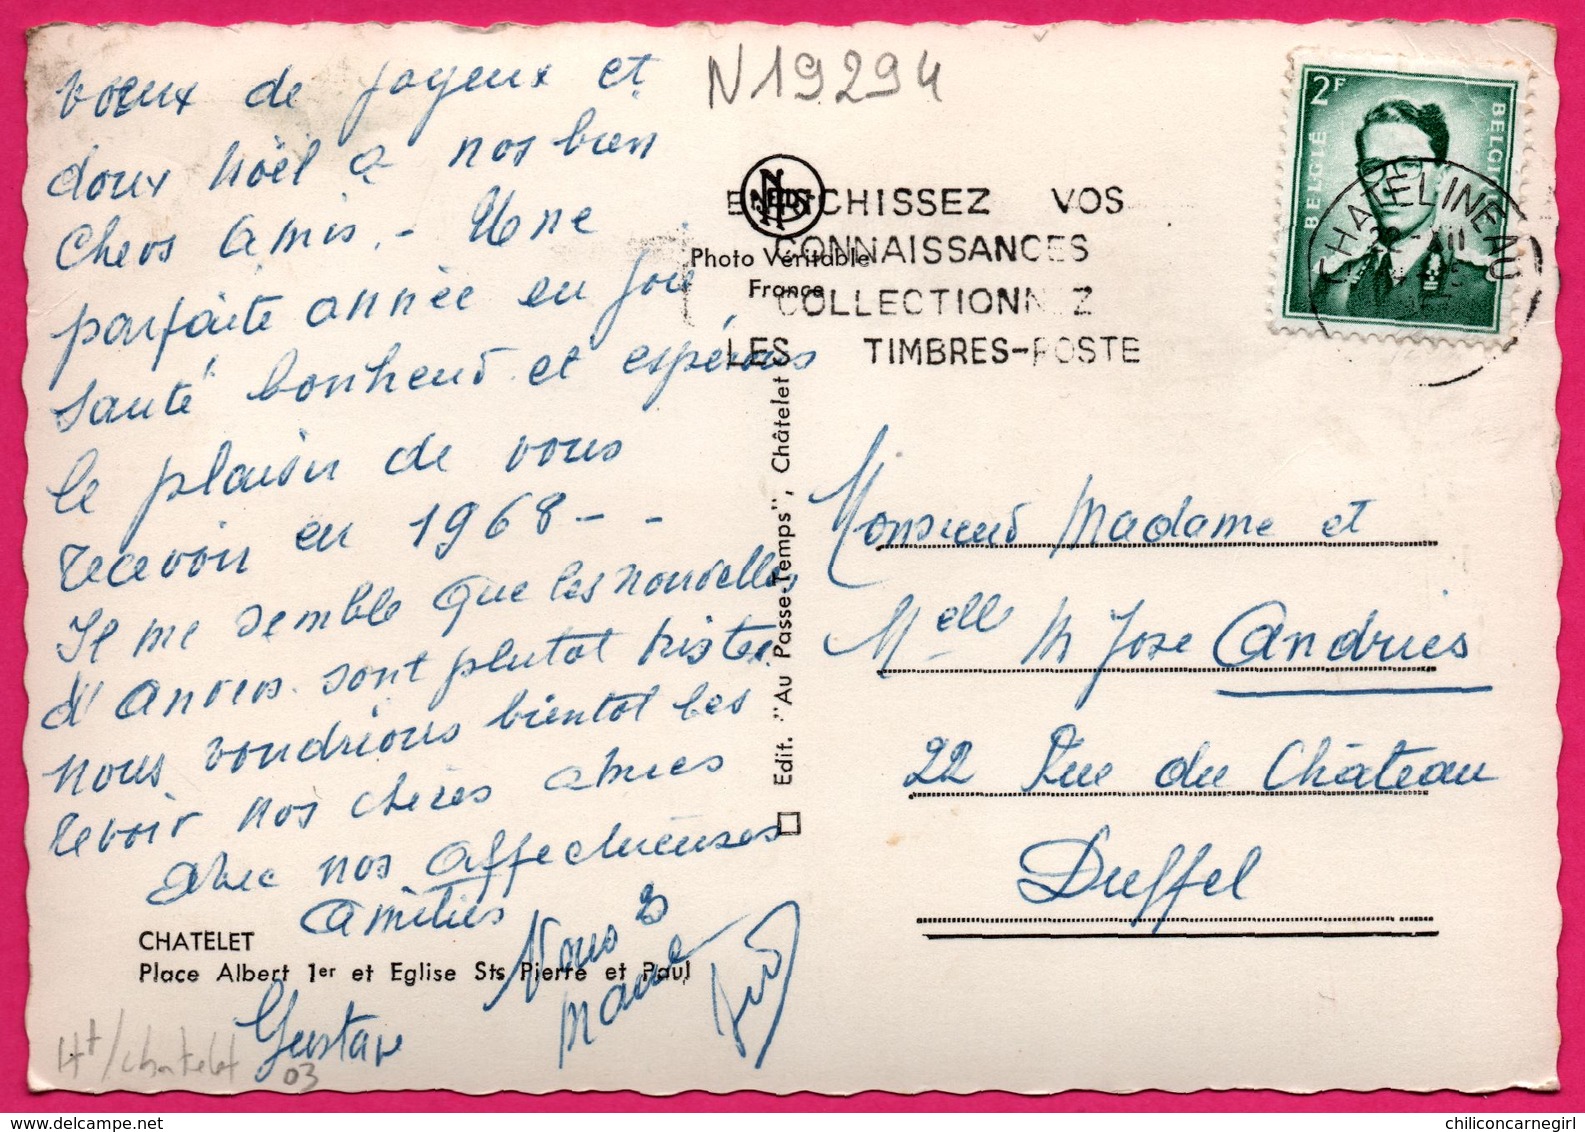 voeux de joyeux et
doux Noël a nos bien
chers amis. - Une
parfaite année en joie
santé bonheur et espérons
le plaisir de vous
recevoir en 1968 - -
Il me semble que les nouvelles
d'Anvers sont plutot tristes
nous voudrions bientot les
revoir nos chères amies
Avec nos affectueuses
amitiés
Nous 2
Gustave
CHATELET
Place Albert 1er et Eglise Sts Pierre et Paul
Ht/chatelet
03
N19294
NELS
Photo Véritable
France
Edit. "Au Passe-Temps", Châtelet
ENRICHISSEZ VOS
CONNAISSANCES
COLLECTIONNEZ
LES TIMBRES-POSTE
2F
BELGIE
BELGIQUE
CHATELINEAU
Monsieur Madame et
Melle M Jose Andries
22 Rue du Château
Duffel
chiliconcarnegirl